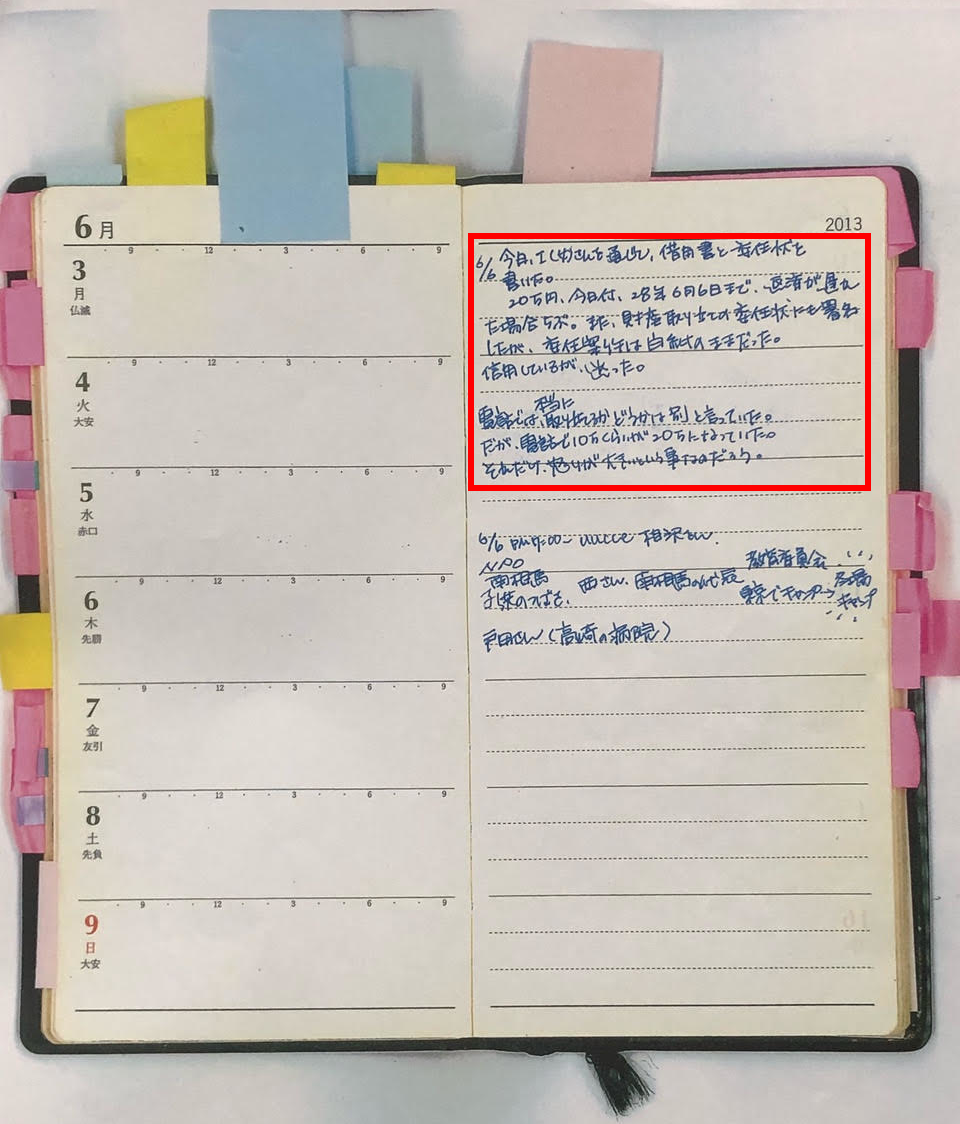 6月
3
月
仏滅
4
火
大安
5
水
赤口
6
木
先勝
7
金
友引
8
土
先負
9
日
大安
9 12 3 6 9
9 12 3 6 9
9 12 3 6 9
9 12 3 6 9
9 12 3 6 9
9 12 3 6 9
9 12 3 6 9
2013
6/6 今日、さんを通じて、借用書と委任状を
書いた。
20万円、今日付、28年6月6日まで、返済が遅れ
た場合。また、財産取り立ての委任状にも署名
したが、委任は白紙のままだった。
信用しているが、迷った。
電話では、本当に取り立てるかどうかは別と言っていた。
だが、電話で10万くらいが20万になっていた。
それだけ、怒りが大きいという事なのだろう。
6/6 相沢さん.
NPO
南相馬 西さん、南相馬の 教育委員会
のつばさ、 東京でキャンプ→ キャンプ
戸田さん(高崎の病院)